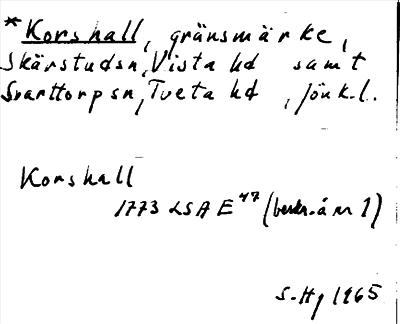 *Korshall, gränsmärke,
Skärstadsn, Vista hd samt
Svarttorpsn, Tveta hd, Jönk.l.
Korshall
1773 LSA E 47 (beskr. å nr 1)
S-Hg 1965